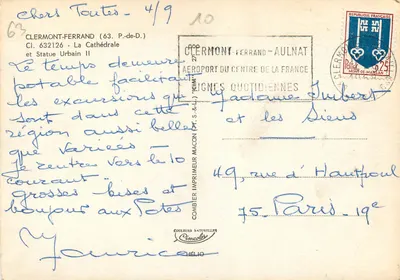 63
Chers Toutes. 4/9
10
CLERMONT-FERRAND (63. P.-de-D.)
CI. 632126 - La Cathédrale
et Statue Urbain II
Le temps demeure
potable facilitant
les excursions qui
sont dans cette
région aussi belles
que variées -
Je rentre vers le 10
courant -
grosses bises et
bonjour aux Potes
Maurice
COMBIER IMPRIMEUR MACON
COULEURS NATURELLES
Combier
HELIO
CLERMONT-FERRAND-AULNAT
AEROPORT DU CENTRE DE LA FRANCE
LIGNES QUOTIDIENNES
REPUBLIQUE FRANÇAISE
0,25
CLERMONT
Madame Imbert
et les Siens
49, rue d'Hautpoul
75 - Paris - 19e